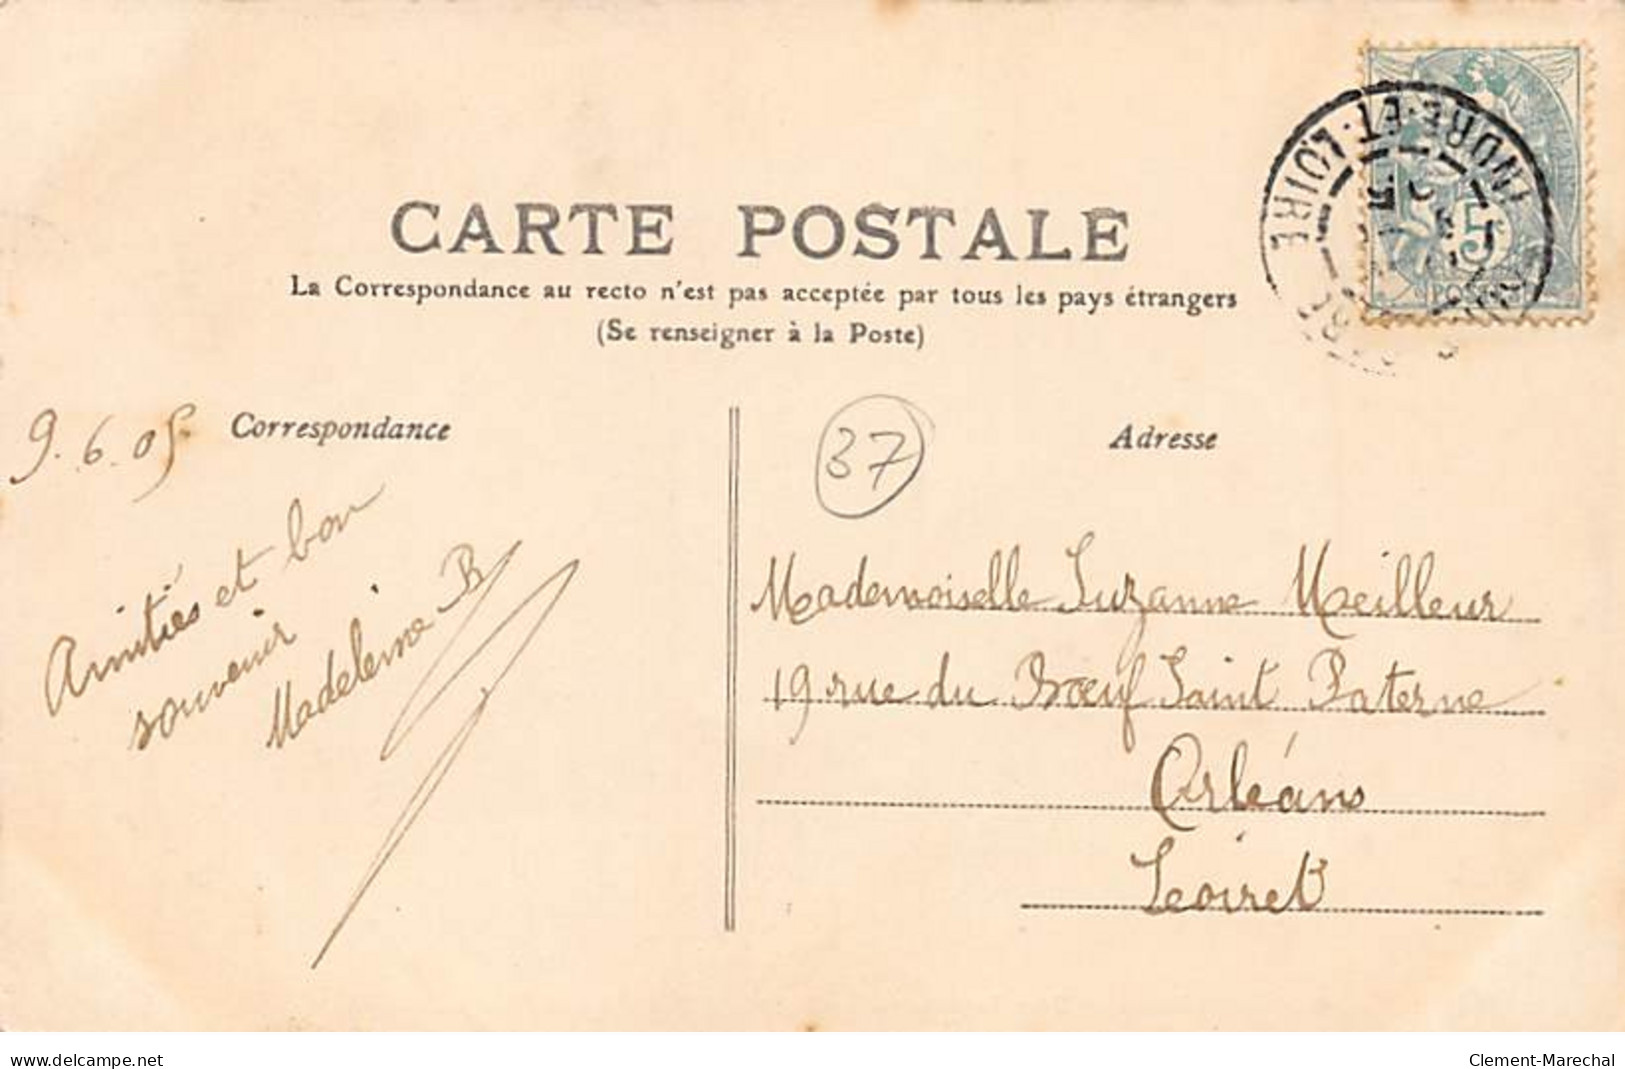 CARTE POSTALE
La Correspondance au recto n'est pas acceptée par tous les pays étrangers
(Se renseigner à la Poste)
INDRE-ET-LOIRE
5
POSTES
9.6.05
Correspondance
Amitiés et bon
souvenir
Madeleine B
37
Adresse
Mademoiselle Suzanne Meilleur
19 rue du Bœuf Saint Paterne
Orléans
Loiret
delcampe.net
Clement-Marechal